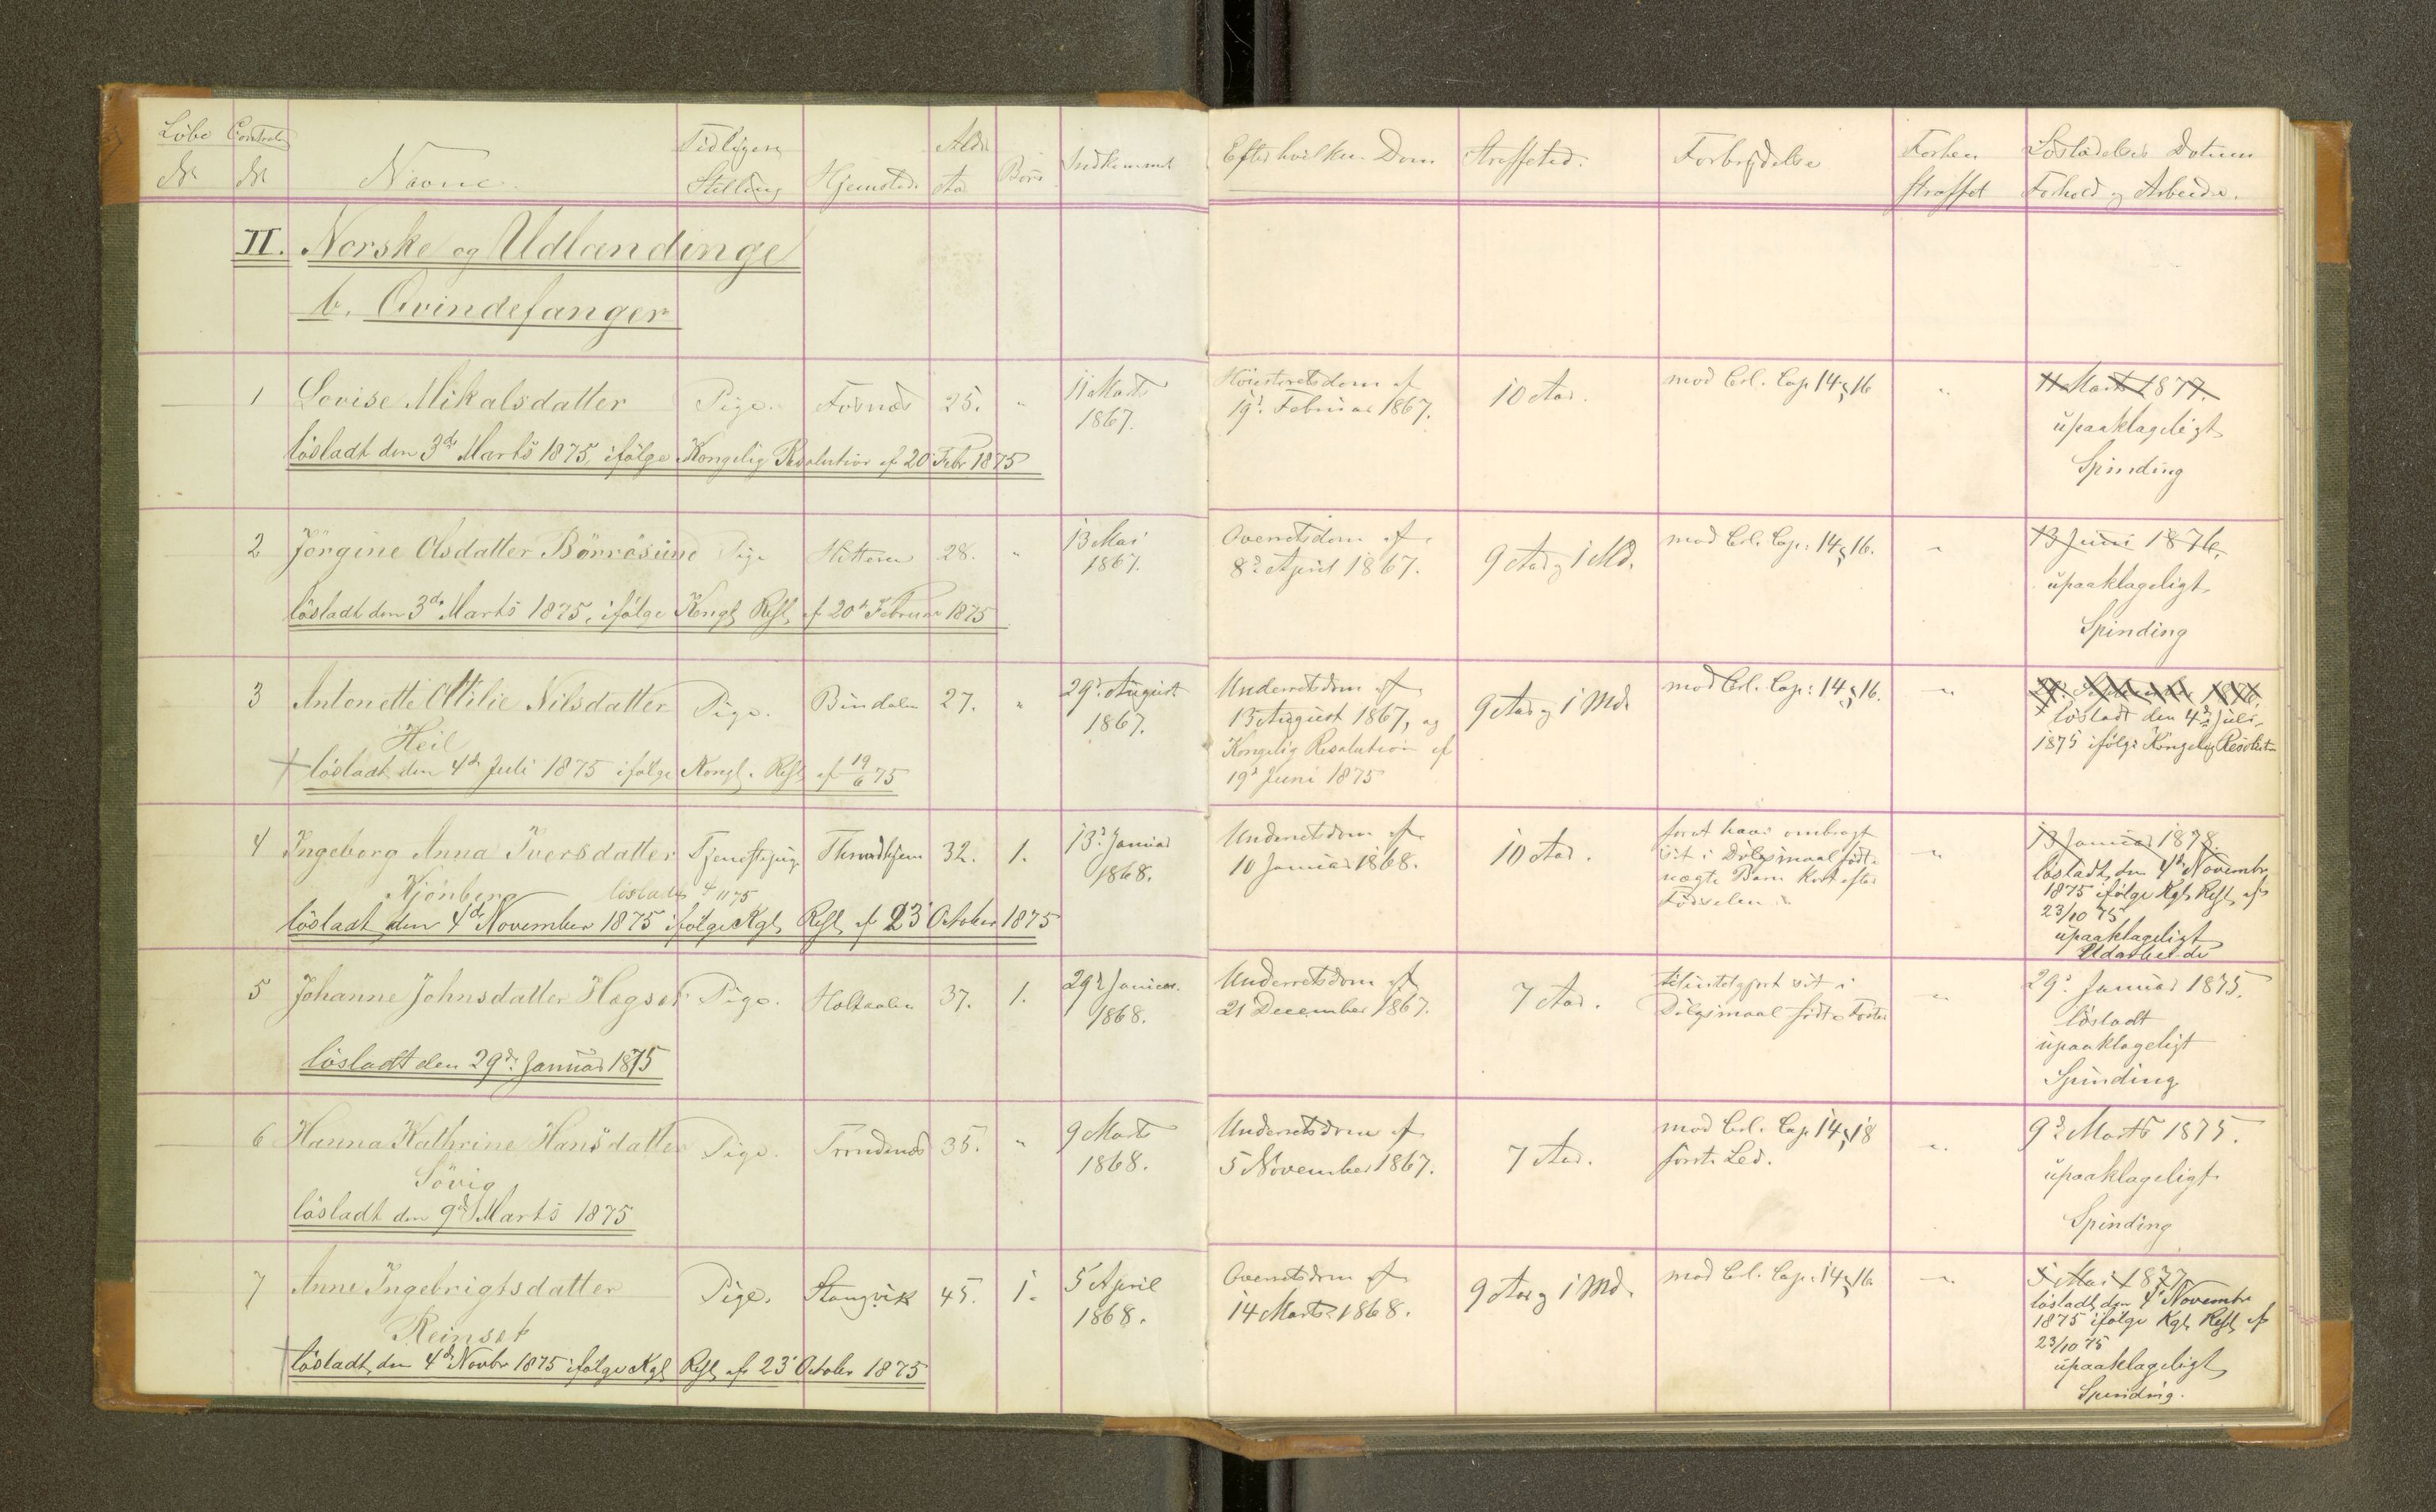 Löbe Control Tidligere Alder Efter hvilken Dom Straffetid. Forbrydelse Forhen Lösladelses Datum
No No Navne. Stilling Hjemsted. Aar Börn Indkommet straffet Forhold og Arbeide.
II. Norske og Udlændinge
b. Qvindefanger
1 Lovise Mikalsdatter Pige. Fosnæs 25. " 11 Marts 1867. Höiesteretsdom af 19d. Februar 1867. 10 Aar. mod Crl. Cap 14 § 16 " 11 Marts 1877.
upaaklageligt
Spinding
lösladt den 3de Marts 1875, ifölge Kongelig Resolution af 20 Febr 1875
2 Jörgine Olsdatter Börrösund Pige Hitteren 28. " 13 Mai 1867. Overretsdom af 8d April 1867. 9 Aar og 1 Md. mod Crl. Cap: 14 § 16. " 13 Juni 1876.
upaaklageligt
Spinding
lösladt den 3de Marts 1875, ifölge Kongl Resl af 20d Februar 1875
3 Antonette Ottilie Nilsdatter Pige. Bindalen 27. " 29d. August 1867. Underretsdom af
Heil 13 August 1867, og
Kongelig Resolution af
19d Juni 1875
9 Aar og 1 Md. mod Crl. Cap: 14 § 16. "
+ lösladt den 4de Juli
1875 ifölge Kongelig Resolution
+ lösladt den 4de Juli 1875 ifölge Kongl. Resl af 19/6 75
4 Ingeborg Anna Iversdatter Tjenestepige Throndhjem 32. 1. 13d. Januar 1868. Underretsdom af 10 Januar 1868. 10 Aar. forat have ombragt
sit i Dölgsmaal födte
uægte Barn kort efter
Födselen
" 13 Januar 1878.
lösladt den 4de Novembr
1875 ifölge Kgl. Resl. af
23/10 75
upaaklageligt
Udarbeide
Kjönberg lösladt 4/11 75
lösladt den 4de November 1875 ifölge Kgl. Resl af 23' October 1875
5 Johanne Johnsdatter Hogset Pige. Holtaalen 37. 1. 29d Januar. 1868. Underretsdom af 21 December 1867. 7 Aar. tilintetgjort sit i
Dölgsmaal födte Foster
" 29d. Januar 1875.
lösladt
upaaklageligt
Spinding
lösladt den 29de Januar 1875
6 Hanna Kathrine Hansdatter Pige. Trondenæs 35. " 9 Marts 1868. Underretsdom af 5 November 1867. 7 Aar. mod Crl. Cap 14 § 18
förste Led.
" 9d Marts 1875.
upaaklageligt
Spinding
Sövig
lösladt den 9de Marts 1875
7 Anne Ingebrigtsdatter Pige. Stangvik 45. 1. 5 April 1868. Overretsdom af 14 Marts 1868. 9 Aar og 1 Md. mod Crl. Cap: 14 § 16 " 5 Mai 1877.
lösladt den 4' Novembr
1875 ifölge Kgl. Resl. af
23/10 75
upaaklageligt
Spinding.
Reinset
+ lösladt den 4de Novbr 1875 ifölge Kgl Resl af 23' October 1875